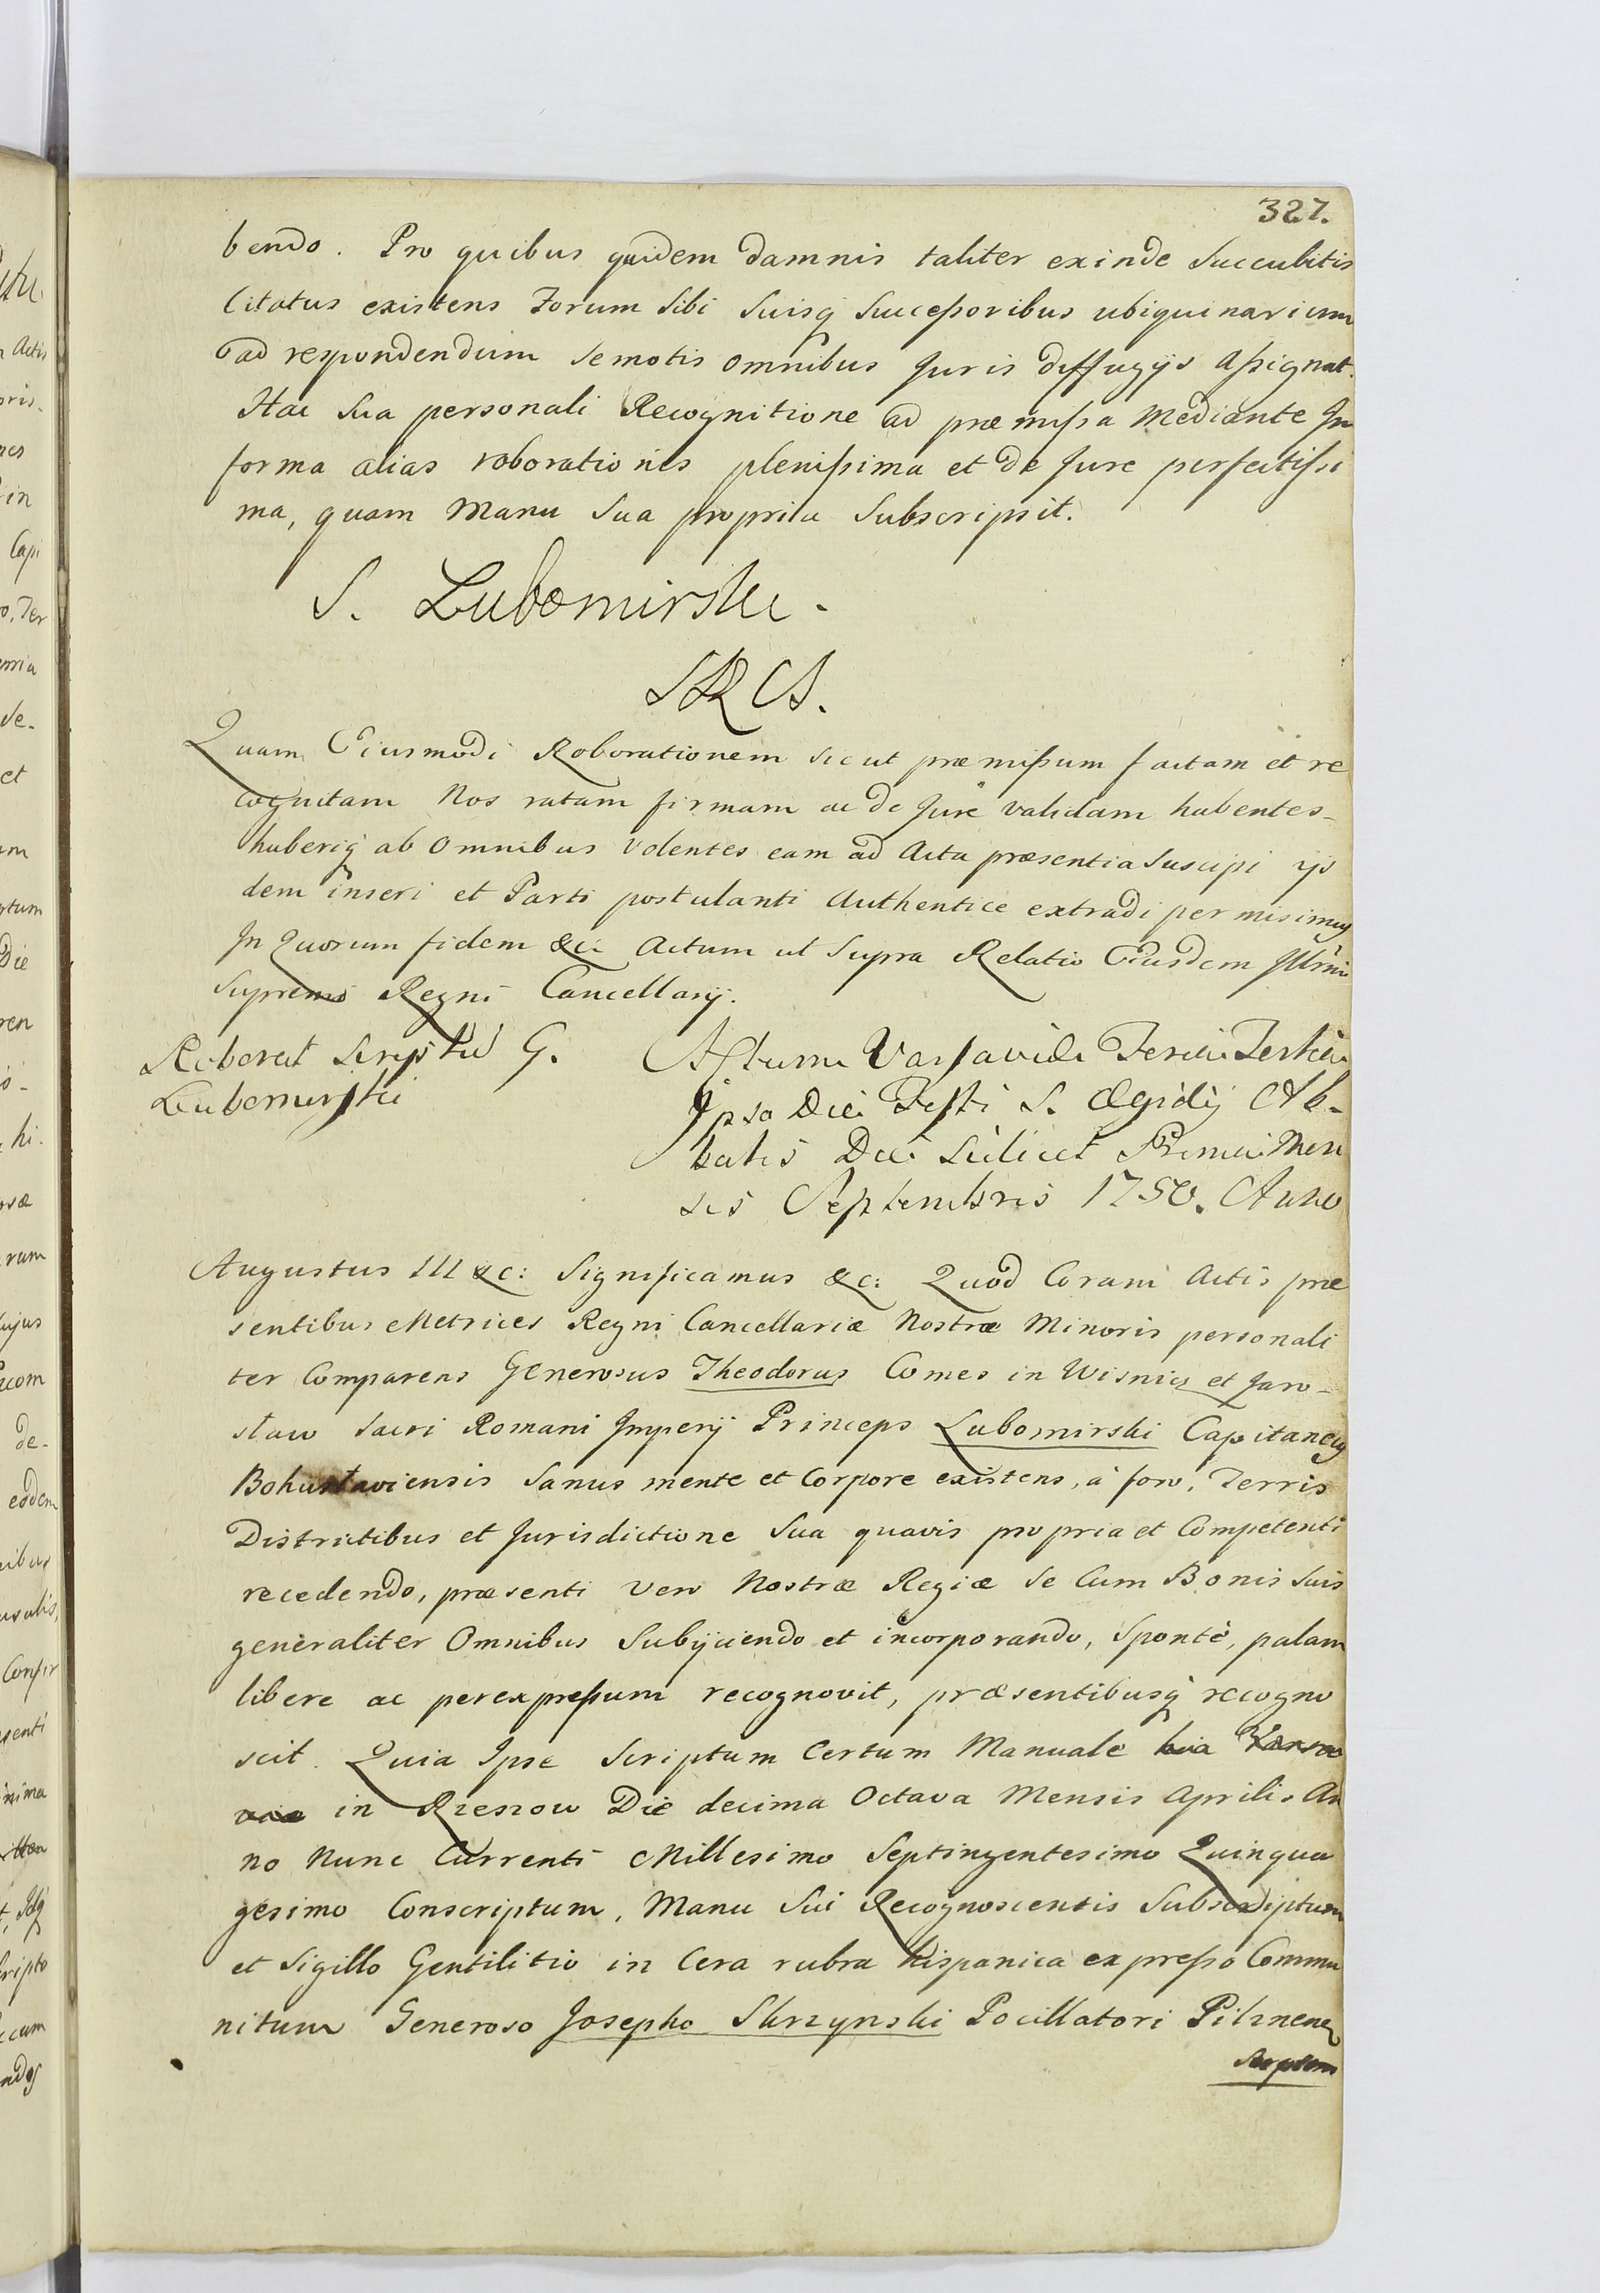 327.
bendo. Pro quibus quidem damnis taliter exinde Succubitis
Citatus existens Forum Sibi Suisq Succeßoribus ubiquinarium
ad respondendum Semotis omnibus Juris diffugijs aßignat.
Hac Sua personali Recognitione ad præmißa Mediante In
forma alias roborationis plenißima et de Jure perfectißi
ma, quam Manu Sua propria Subscripsit.
S. Lubomirski.
Quam Eiusmodi Roborationem sicut præmißum factam et re
cognitam Nos ratam firmam ac de Jure validam habentes
haberiq ab Omnibus Volentes eam ad Acta præsentia Suscipi ijs
dem inseri et Parti postulanti Authentice extradi permisimus
In Quorum fidem &c Actum ut Supra Relatio Eiusdem Illrmi
Supremi Regni Cancellarij.
Roborat Scriptum G.
Lubomirski
Actum Varsaviæ Feria Tertia
Ipso Die Festi S. Ægidij Ab-
batis Die Scilicet Prima Men
sis Septembris 1750. Anno
Augustus III &c: Significamus &c: Quod Coram Actis præ
sentibus Metrices Regni Cancellariæ Nostræ Minoris personali
ter Comparens Generosus Theodorus Comes in Wisnicz et Jaro-
sław Sacri Romani Imperij Princeps Lubomirski Capitaneus
Bohuslaviensis Sanus mente et Corpore existens, à foro, Terris
Districtibus et Jurisdictione Sua quavis propria et Competenti
recedendo, præsenti vero Nostræ Regiæ Se Cum Bonis Suis
generaliter Omnibus Subijciendo et incorporando, Sponte, palam
libere ac per expreßum recognovit, præsentibusq recogno
scit. Quia Ipse Scriptum Certum Manuale
in Rzeszow Die decima Octava Mensis Aprilis An
no Nunc Currenti Millesimo Septingentesimo Quinqua
gesimo Conscriptum, Manu Sui Recognoscentis Subscriptum
et Sigillo Gentilitio in Cera rubra hispanica expreßo Commu
nitum Generoso Josepho Skrzynski Pocillatori Pilznen